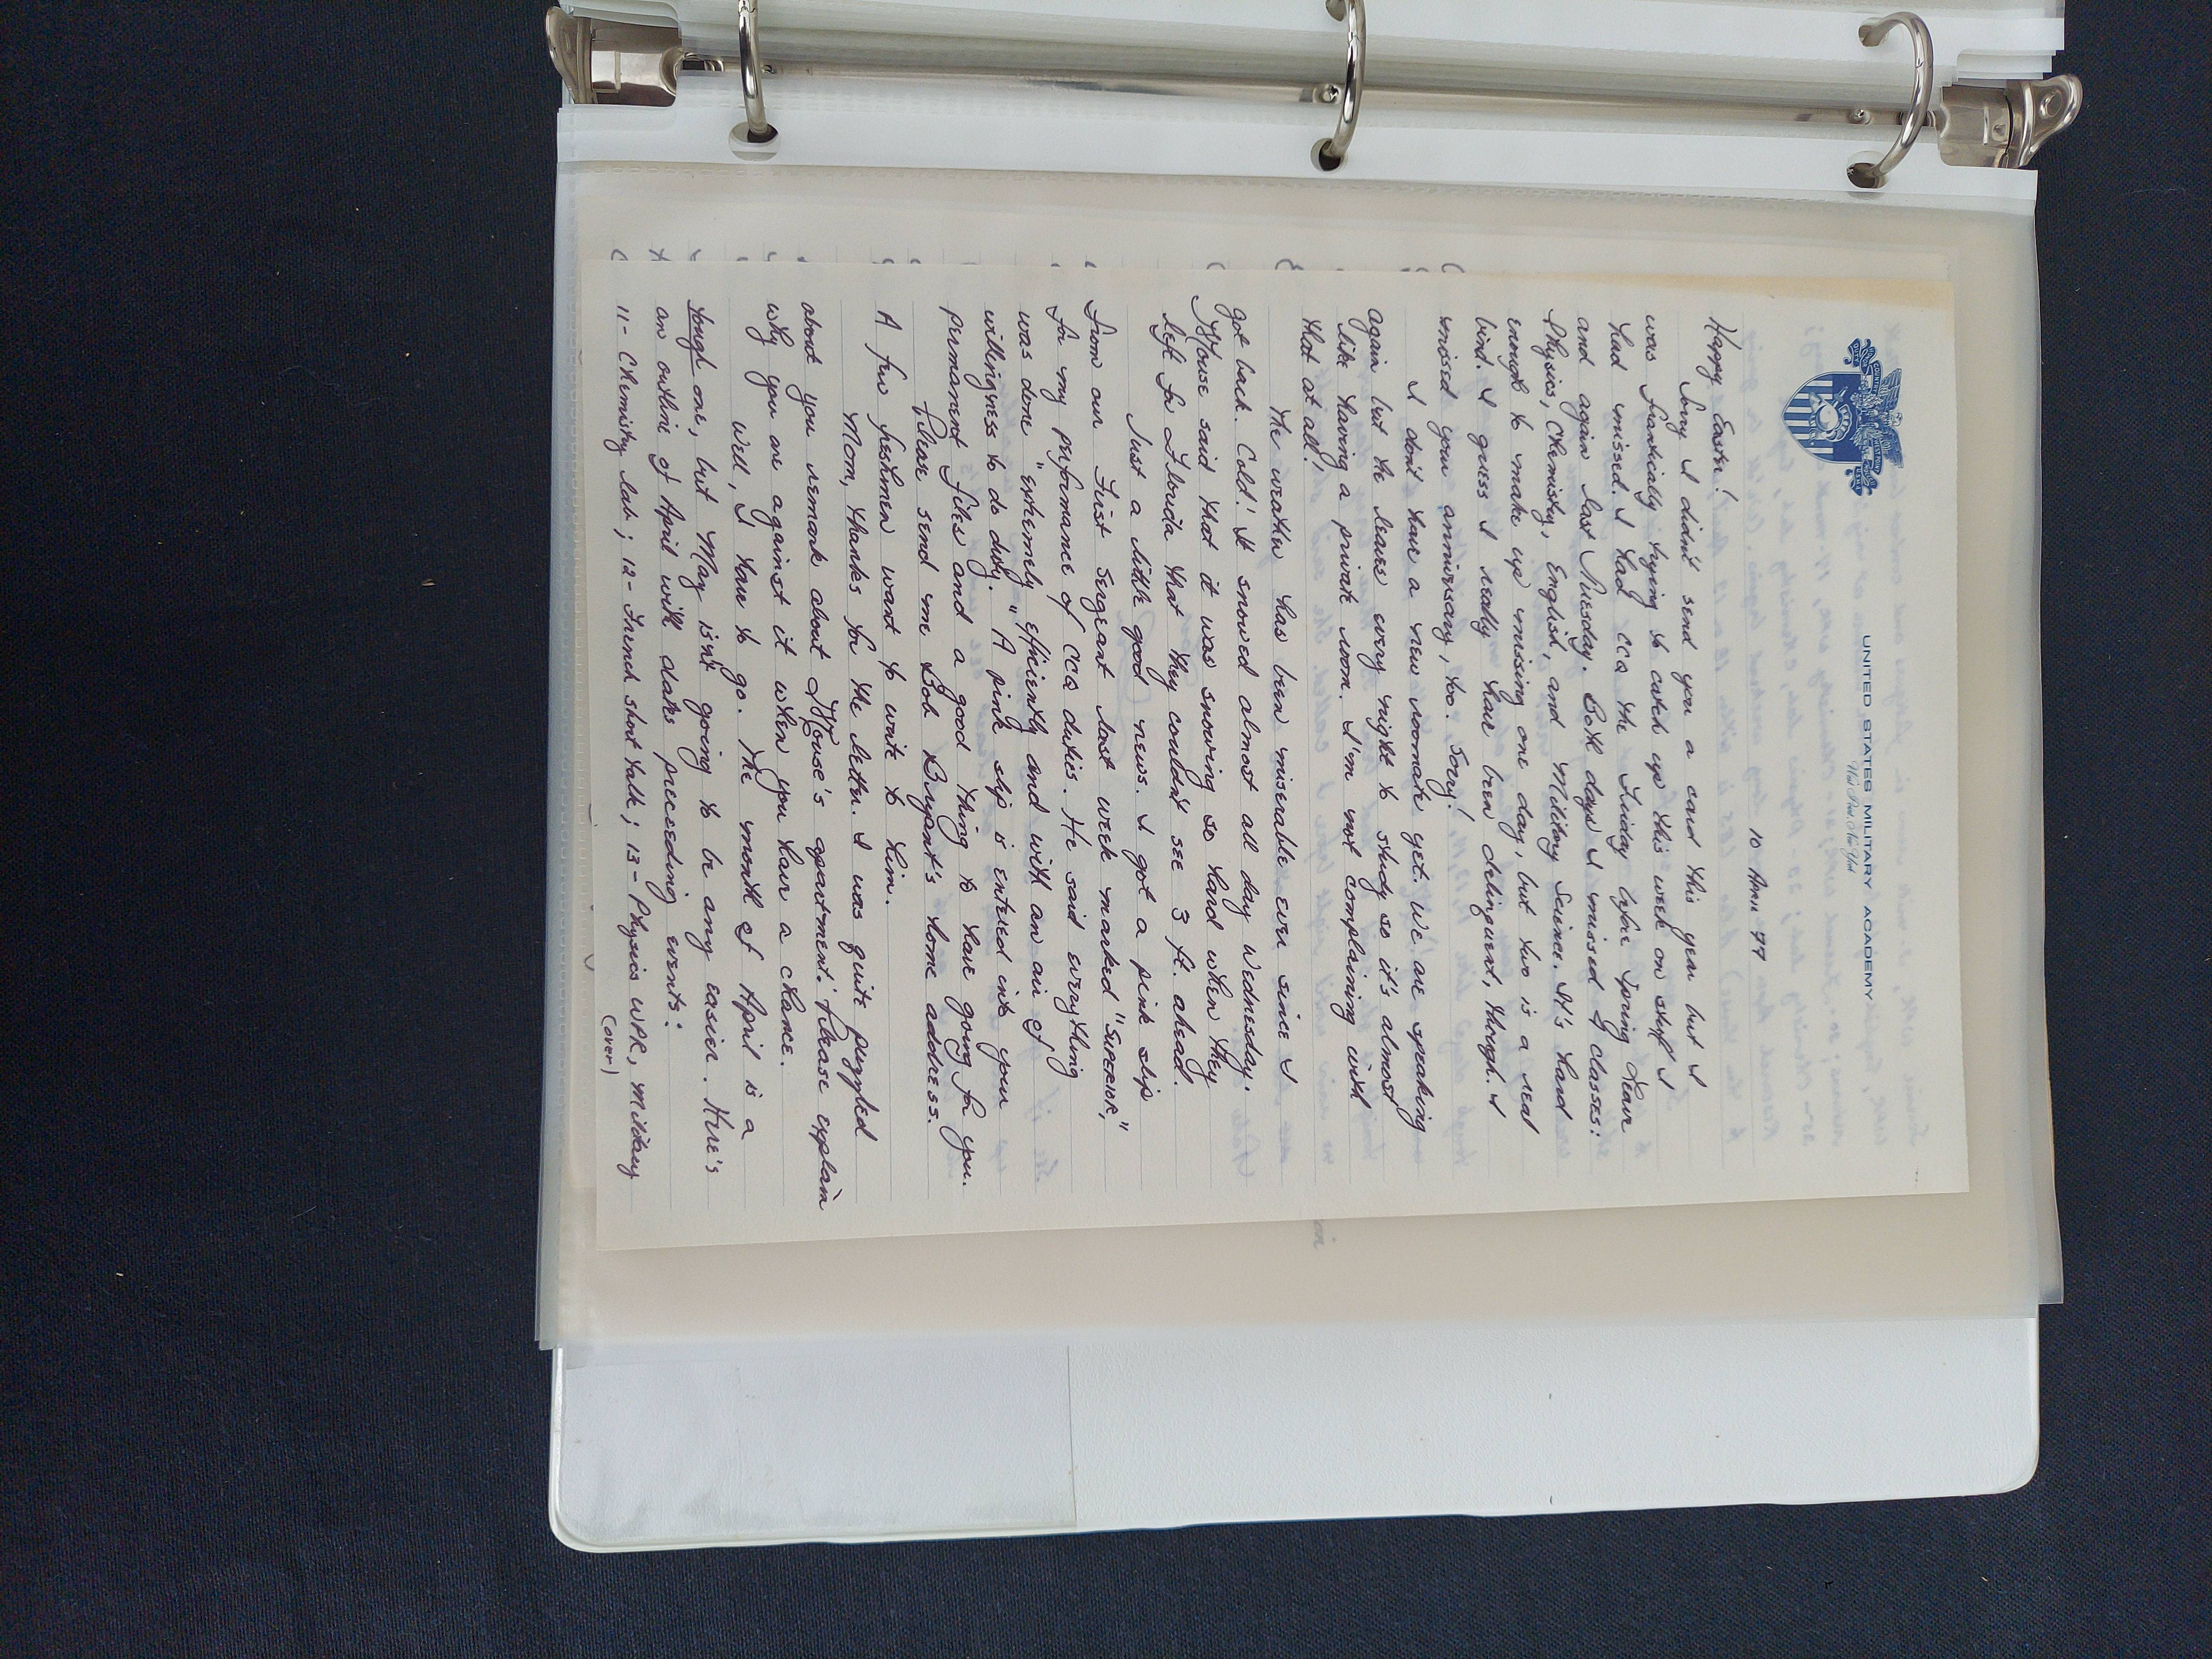 UNITED STATES MILITARY ACADEMY
West Point, New York
10 April 77
Happy Easter!
Sorry I didn't send you a card this year but I
was frantically trying to catch up this week on stuff I
had missed. I had CCQ the Friday before Spring Leave
and again last Tuesday. Both days I missed 4 classes:
Physics, Chemistry, English, and Military Science. It's hard
enough to make up missing one day, but two is a real
bind. I guess I really have been delinquent, though. I
missed your anniversary, too. Sorry!
I don't have a new roomate yet. We are speaking
again but he leaves every night to study so it's almost
like having a private room. I'm not complaining with
that at all!
The weather has been miserable ever since I
got back. Cold! It snowed almost all day Wednesday.
House said that it was snowing so hard when they
left for Florida that they couldn't see 3 ft. ahead.
Just a little good news. I got a pink slip
from our First Sergeant last week marked "SUPERIOR,"
for my performance of CCQ duties. He said everything
was done "extremely efficiently and with an air of
willingness to do duty." A pink slip is entered into your
permanent files and a good thing to have going for you.
Please send me Bob Bryant's home address.
A few freshmen want to write to him.
Mom, thanks for the letter. I was quite puzzled
about you remark about House's apartment. Please explain
why you are against it when you have a chance.
Well, I have to go. The month of April is a
tough one, but May isn't going to be any easier. Here's
an outline of April with dates preceeding events:
11- Chemistry lab; 12- French short talk; 13- Physics WPR, Military
(over)